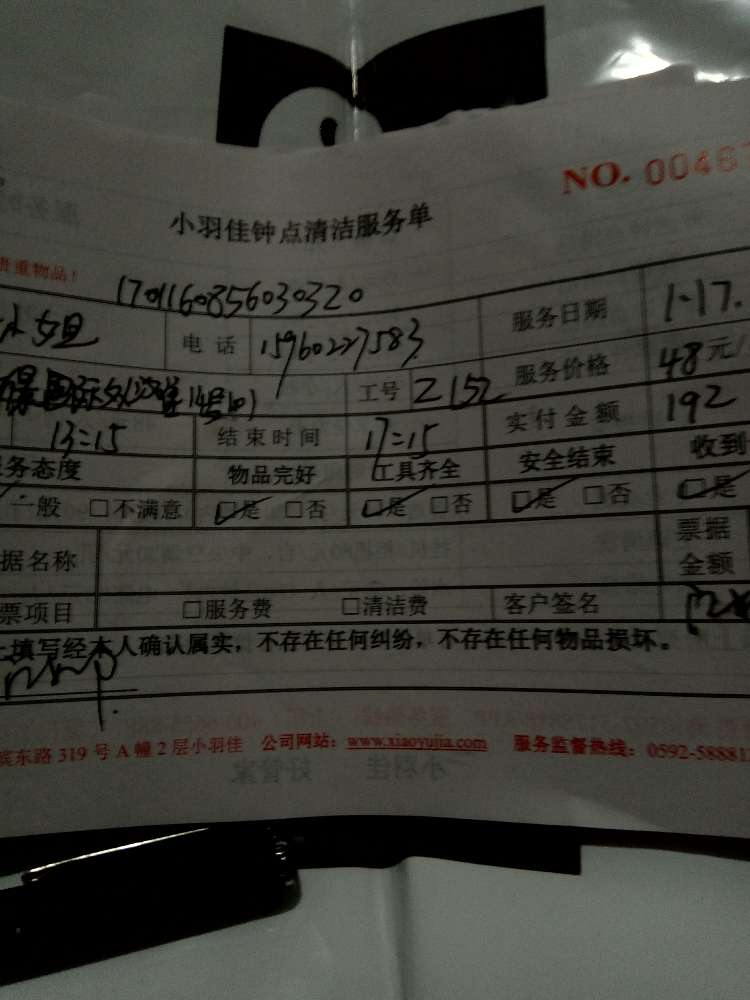 NO. 0048
小羽佳钟点清洁服务单
贵重物品！
1701160856030320
小姐 电话 15960227583 服务日期 1-17.
工号 Z152 服务价格 48元/
13:15 结束时间 17:15 实付金额 192
务态度 物品完好 工具齐全 安全结束 收到
一般 □不满意 □是 □否 □是 □否 □是 □否 □是
据名称 票据金额
票项目 □服务费 □清洁费 客户签名
上填写经本人确认属实，不存在任何纠纷，不存在任何物品损坏。
滨东路 319 号 A 幢 2 层小羽佳 公司网站：www.xiaoyujia.com 服务监督热线：0592-58881